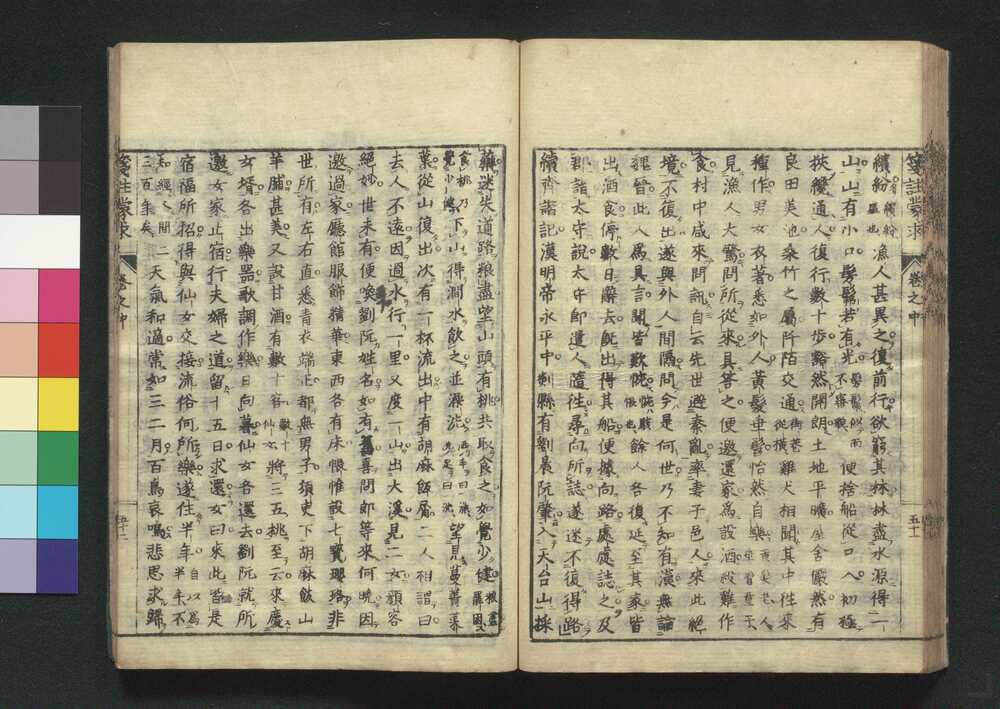 箋註蒙求 卷之中 五十一
繽紛繽紛盛也漁人甚異之復前行欲窮其林林盡水源得一
山山有小口髣髴若有光髣髴似而不審貌便捨船從口入初極
狹纔通人復行數十步豁然開朗土地平曠屋舍儼然有
良田美池桑竹之屬阡陌交通雞犬相聞其中往來
種作男女衣著悉如外人黃髮垂髫怡然自樂
見漁人大驚問所從來具答之便邀還家爲設酒殺雞作
食村中咸來問訊自云先世避秦亂率妻子邑人來此絕
境不復出遂與外人間隔問今是何世乃不知有漢無論
魏晉此人爲具言聞皆歎惋餘人各復延至其家皆
出酒食停數日辭去旣出得其船便據向路處處誌之及
郡詣太守說太守卽遣人隨往尋向所誌遂迷不復得路
續齊諧記漢明帝永平中剡縣有劉晨阮肇入天台山採
藥迷失道路粮盡望山頭有桃共取食之如覺少健
下山得澗水飲之並澡洗望見蔓菁
葉從山復出次有一杯流出中有胡麻飯屬二人相謂曰
去人不遠因過水行一里又度一山出大溪見二女顏容
絕妙世未有便喚劉阮姓名如有舊喜問郎等來何晚因
邀過家廳館服飾精華東西各有床帳帷設七寶瓔珞非
世所有左右直悉青衣端正都無男子須臾下胡麻飯山
羊脯甚美又設甘酒有數十客將三五桃至云來慶
女壻各出樂器歌調作樂日向暮仙女各還去劉阮就所
邀女家止宿行夫婦之道留十五日求還女曰來此皆是
宿福所招得與仙女交接流俗何所樂遂住半年
天氣和適常如二三月百鳥哀鳴悲思求歸